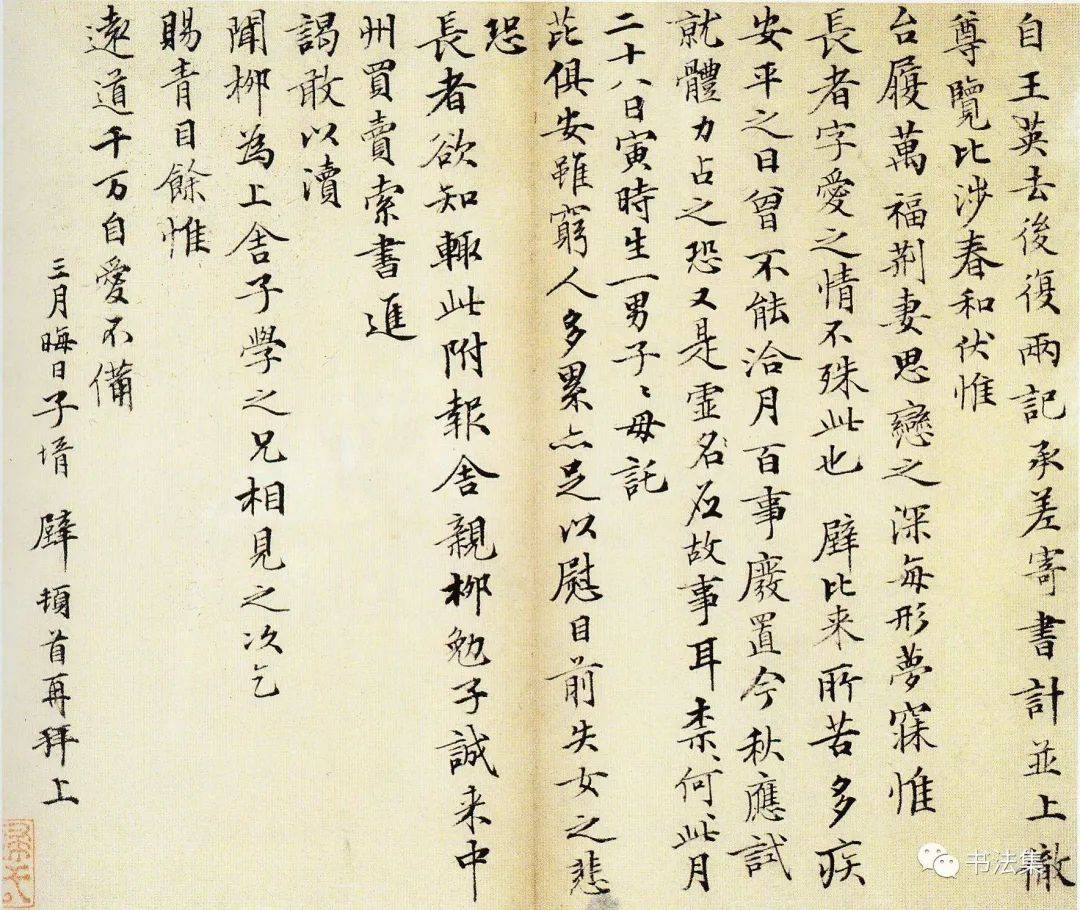 自王英去後復兩記承差寄書計並上徹
尊覽比涉春和伏惟
台履萬福荊妻思戀之深每形夢寐惟
長者字愛之情不殊此也 壁比来所苦多疾
安平之日曾不能洽月百事廢置今秋應試
就體力占之恐又是虛名名故事耳柰何此月
二十八日寅時生一男子〻母託
芘俱安雖窮人多累亦足以慰目前失女之悲
恐
長者欲知輒此附報舍親柳勉子誠来中
州買賣索書進
謁敢以瀆
聞柳為上舍子學之兄相見之次乞
賜青目餘惟
遠道千万自愛不備
三月晦日子壻 壁 頓首再拜上
书法集